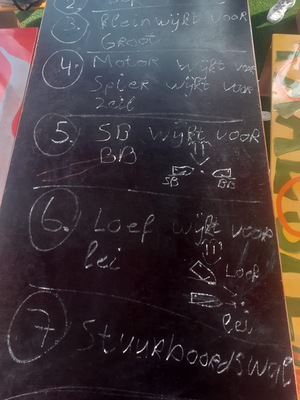 2.
3. Klein wijkt voor
Groot
4. Motor wijkt voor
Spier wijkt voor
Zeil
5. SB wijkt voor
BB
SB BB
6. Loef wijkt voor
lei
Loef
lei
7 Stuurboordswal